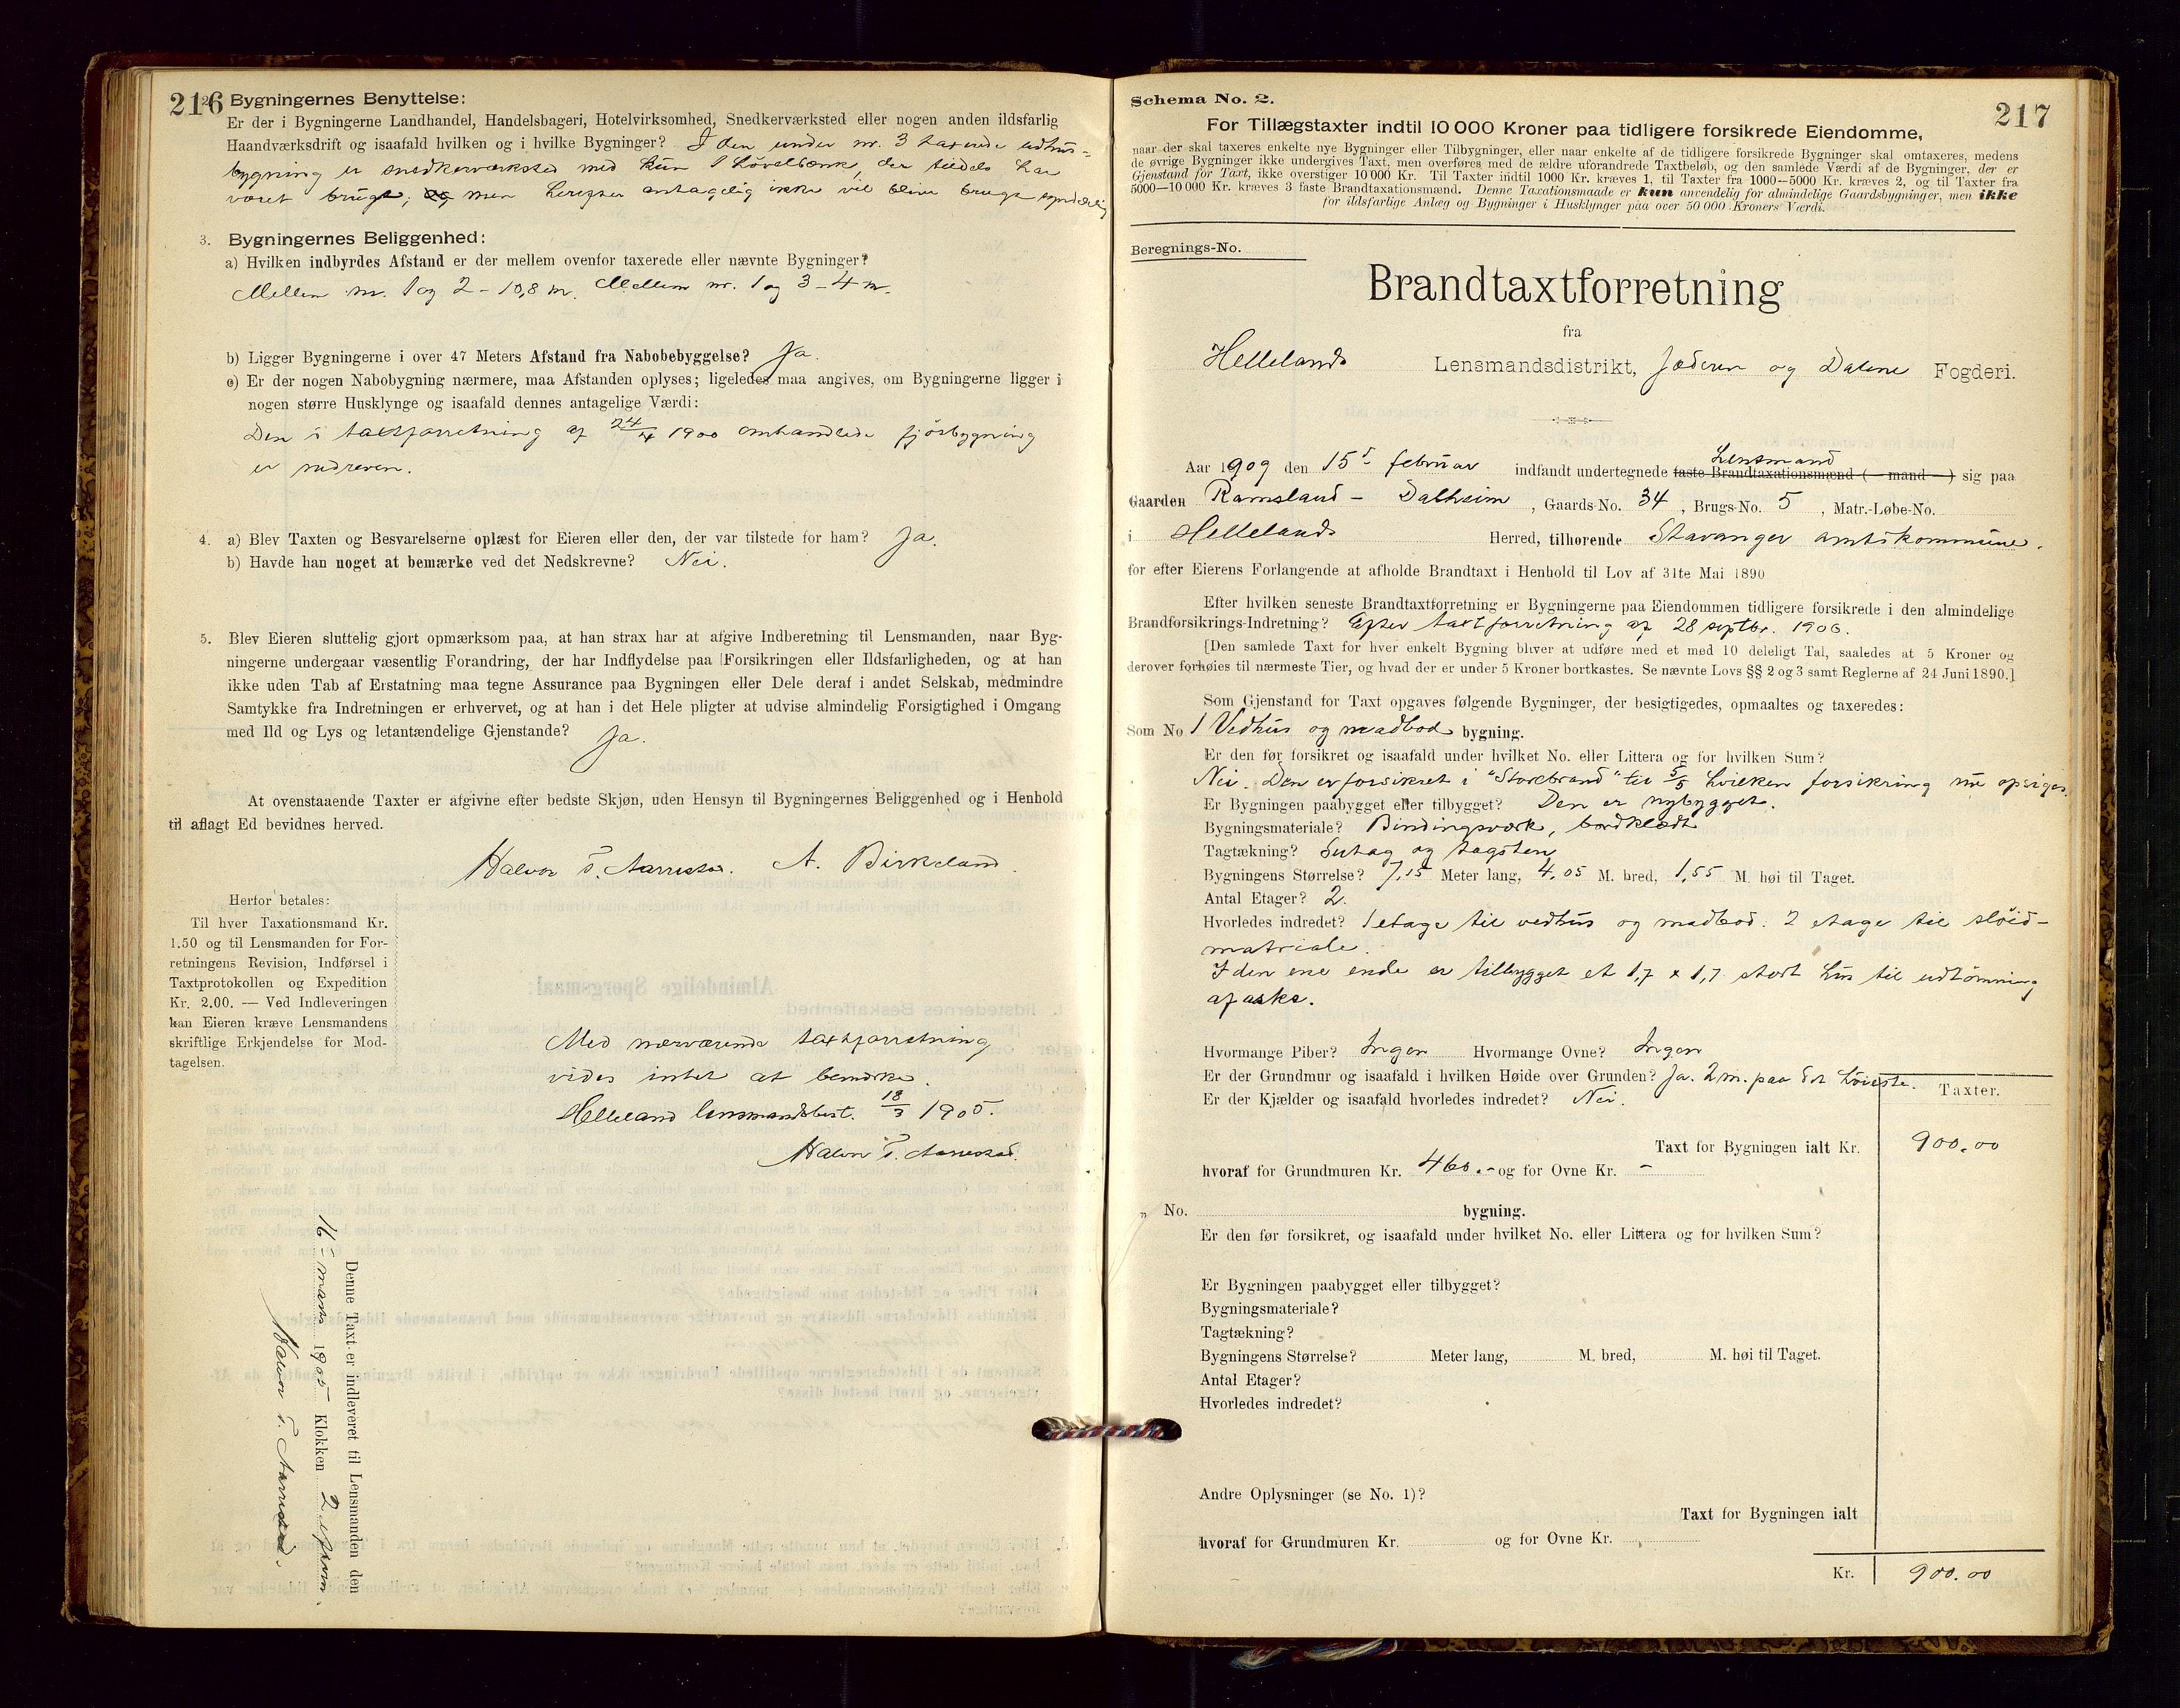 216
2. Bygningernes Benyttelse:
Er der i Bygningerne Landhandel, Handelsbageri, Hotelvirksomhed, Snedkerværksted eller nogen anden ildsfarlig
Haandværksdrift og isaafald hvilken og i hvilke Bygninger? I den under nr. 3 taxerede udhus-
bygning er snedkerværksted med kun 1 hövelbænk, der tildels har
været brugt; og men herefter antagelig ikke vil blive brugt
3. Bygningernes Beliggenhed:
a) Hvilken indbyrdes Afstand er der mellem ovenfor taxerede eller nævnte Bygninger?
Mellem nr. 1 og 2 - 10,8 m. Mellem nr. 1 og 3 - 4 m.
b) Ligger Bygningerne i over 47 Meters Afstand fra Nabobebyggelse? Ja.
c) Er der nogen Nabobygning nærmere, maa Afstanden oplyses; ligeledes maa angives, om Bygningerne ligger i
nogen større Husklynge og isaafald dennes antagelige Værdi:
Den i taxtforretning af 24/4 1900 omhandlede fjösbygning
er nedreven.
4. a) Blev Taxten og Besvarelserne oplæst for Eieren eller den, der var tilstede for ham? Ja.
b) Havde han noget at bemærke ved det Nedskrevne? Nei.
5. Blev Eieren sluttelig gjort opmærksom paa, at han strax har at afgive Indberetning til Lensmanden, naar Byg-
ningerne undergaar væsentlig Forandring, der har Indflydelse paa Forsikringen eller Ildsfarligheden, og at han
ikke uden Tab af Erstatning maa tegne Assurance paa Bygningen eller Dele deraf i andet Selskab, medmindre
Samtykke fra Indretningen er erhvervet, og at han i det Hele pligter at udvise almindelig Forsigtighed i Omgang
med Ild og Lys og letantændelige Gjenstande? Ja.
At ovenstaaende Taxter er afgivne efter bedste Skjøn, uden Hensyn til Bygningernes Beliggenhed og i Henhold
til aflagt Ed bevidnes herved.
Halvor T. Aarrestad. A. Birkeland
Herfor betales:
Til hver Taxationsmand Kr.
1.50 og til Lensmanden for For-
retningens Revision, Indførsel i
Taxtprotokollen og Expedition
Kr. 2.00. — Ved Indleveringen
kan Eieren kræve Lensmandens
skriftlige Erkjendelse for Mod-
tagelsen.
Med nærværende taxtforretning
vides intet at bemærke.
Helleland lensmandsbest. 18/3 1905.
Halvor T. Aarrestad.
Denne Taxt er indleveret til Lensmanden den
16 - marts 1905 Klokken 2 efterm.
Halvor T. Aarrestad.
217
Schema No. 2.
For Tillægstaxter indtil 10 000 Kroner paa tidligere forsikrede Eiendomme,
naar der skal taxeres enkelte nye Bygninger eller Tilbygninger, eller naar enkelte af de tidligere forsikrede Bygninger skal omtaxeres, medens
de øvrige Bygninger ikke undergives Taxt, men overføres med de ældre uforandrede Taxtbeløb, og den samlede Værdi af de Bygninger, der er
Gjenstand for Taxt, ikke overstiger 10 000 Kr. Til Taxter indtil 1000 Kr. kræves 1, til Taxter fra 1000—5000 Kr. kræves 2, og til Taxter fra
5000—10 000 Kr. kræves 3 faste Brandtaxationsmænd. Denne Taxationsmaade er kun anvendelig for almindelige Gaardsbygninger, men ikke
for ildsfarlige Anlæg og Bygninger i Husklynger paa over 50 000 Kroners Værdi.
Beregnings-No.
Brandtaxtforretning
fra
Hellelands Lensmandsdistrikt, Jæderen og Dalene Fogderi.
Aar 1909 den 15de februar indfandt undertegnede faste Brandtaxationsmænd (— mand —) Lensmand sig paa
Gaarden Ramsland - Dalheim, Gaards-No. 34, Brugs-No. 5, Matr.-Løbe-No.
i Hellelands Herred, tilhørende Stavanger amtskommune.
for efter Eierens Forlangende at afholde Brandtaxt i Henhold til Lov af 31te Mai 1890
Efter hvilken seneste Brandtaxtforretning er Bygningerne paa Eiendommen tidligere forsikrede i den almindelige
Brandforsikrings-Indretning? Efter taxtforretning af 28 septbr. 1906.
[Den samlede Taxt for hver enkelt Bygning bliver at udføre med et med 10 deleligt Tal, saaledes at 5 Kroner og
derover forhøies til nærmeste Tier, og hvad der er under 5 Kroner bortkastes. Se nævnte Lovs §§ 2 og 3 samt Reglerne af 24 Juni 1890.]
Som Gjenstand for Taxt opgaves følgende Bygninger, der besigtigedes, opmaaltes og taxeredes:
Som No 1 Vedhus og madbod bygning.
Er den før forsikret og isaafald under hvilket No. eller Littera og for hvilken Sum?
Nei. Den er forsikret i "Storebrand" til 5/5 hvilken forsikring nu opsiges.
Er Bygningen paabygget eller tilbygget? Den er nybygget.
Bygningsmateriale? Bindingsværk, bordklædt
Tagtækning? Sutag og tagsten
Bygningens Størrelse? 7,15 Meter lang, 4,05 M. bred, 1,55 M. høi til Taget.
Antal Etager? 2.
Hvorledes indredet? 1 etage til vedhus og madbod. 2 etage til slöid-
matriale.
I den ene ende er tilbygget et 1,7 x 1,7 stort hus til udtömning
af aske.
Hvormange Piber? Ingen Hvormange Ovne? Ingen
Er der Grundmur og isaafald i hvilken Høide over Grunden? Ja. 2 m. paa det höieste.
Er der Kjælder og isaafald hvorledes indredet? Nei.
Taxter.
Taxt for Bygningen ialt Kr. 900.00
hvoraf for Grundmuren Kr. 460.- og for Ovne Kr. -
„ No. bygning.
Er den før forsikret, og isaafald under hvilket No. eller Littera og for hvilken Sum?
Er Bygningen paabygget eller tilbygget?
Bygningsmateriale?
Tagtækning?
Bygningens Størrelse? Meter lang, M. bred, M. høi til Taget.
Antal Etager?
Hvorledes indredet?
Andre Oplysninger (se No. 1)?
Taxt for Bygningen ialt
hvoraf for Grundmuren Kr. og for Ovne Kr.
Kr. 900.00